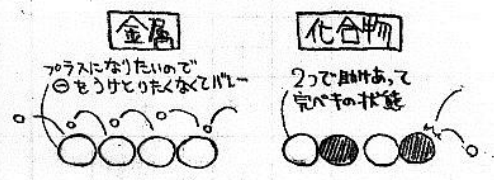 金属
プラスになりたいので
⊖をうけとりたくなくてバレー
化合物
2つで助けあって
完ペキの状態